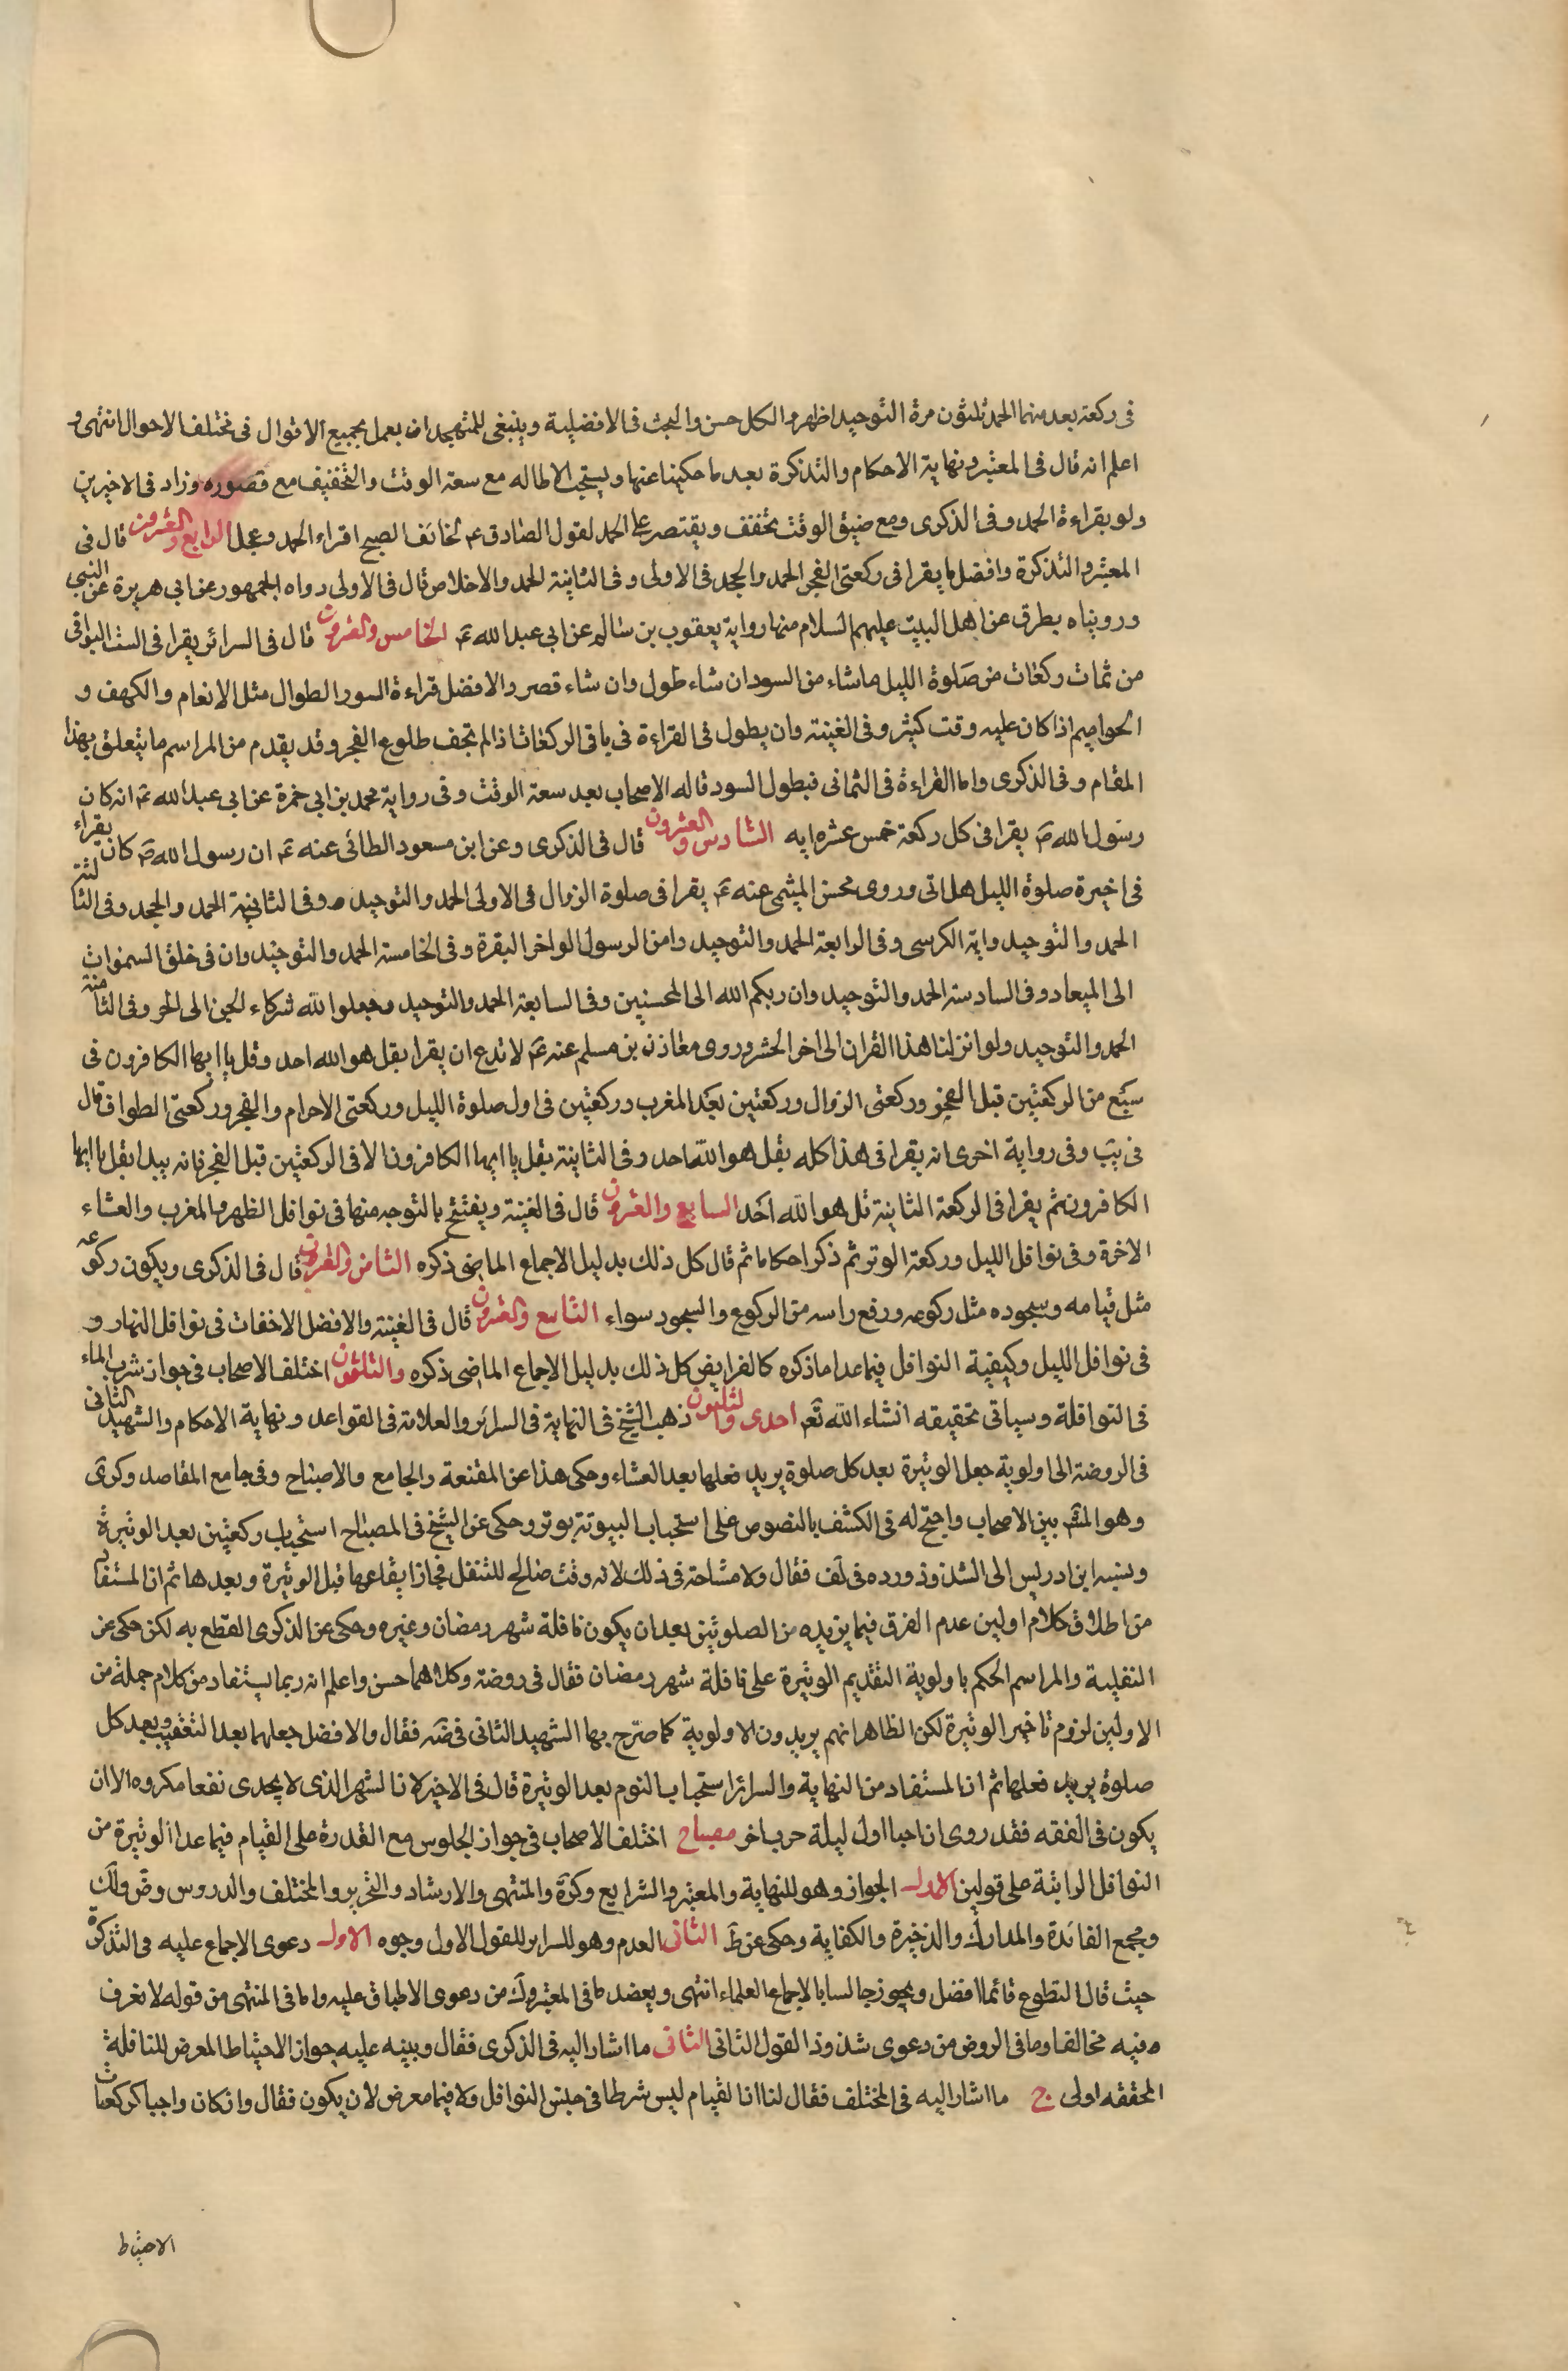 فى ركعة بعد منهما الحمد ثلثون مرة التوحيد اظهر والكل حسن والبحث فى الافضلية وينبغى للمتهجد ان يعمل بجميع الاقوال فى مختلف الاحوال انتهى و
اعلم انه قال فى المعتبر ونهاية الاحكام والتذكرة بعد ما حكينا عنها ويستحب الاطاله مع سعة الوقت والتخفيف مع قصوره وزاد فى الاخيرين
ولو بقراءة الحمد وفى الذكرى ومع ضيق الوقت يخفف ويقتصر على الحمد لقول الصادق ع لخائف الصبح اقراء الحمد وعجل الرابع والعشرون قال فى
المعتبر والتذكرة وافضل ما يقرا فى ركعتى الفجر الحمد والجحد فى الاولى وفى الثانية الحمد والاخلاص قال فى الاولى رواه الجمهور عن ابى هريرة عن النبى
ورويناه بطرق عن اهل البيت عليهم السلام منها رواية يعقوب بن سالم عن ابى عبد الله ع الخامس والعشرون قال فى السرائر يقرا فى الست البواقى
من ثمان ركعات من صلوة الليل ما شاء من السور ان شاء طول وان شاء قصر والافضل قراءة السور الطوال مثل الانعام والكهف و
الحواميم اذا كان عليه وقت كثير وفى الغنية وان يطول فى القراءة فى باقى الركعات اذا لم يخف طلوع الفجر وقد يقدم من المراسم ما يتعلق بهذا
المقام وفى الذكرى واما القراءة فى الثمانى فبطول السور قاله الاصحاب بعد سعة الوقت وفى رواية محمد بن ابى حمزة عن ابى عبد الله ع انه كان
رسول الله ص يقرا فى كل ركعة خمس عشره ايه السادس والعشرون قال فى الذكرى وعن ابن مسعود الطائى عنه ع ان رسول الله ص كان يقراء
فى اخيرة صلوة الليل هل اتى وروى محسن الميثمى عنه ع يقرا فى صلوة الزوال فى الاولى الحمد والتوحيد وفى الثانية الحمد والجحد وفى الثالثة
الحمد والتوحيد واية الكرسى وفى الرابعة الحمد والتوحيد وامن الرسول الو اخر البقرة وفى الخامسة الحمد والتوحيد وان فى خلق السموات
الى الميعاد وفى السادسة الحمد والتوحيد وان ربكم الله الى المحسنين وفى السابعة الحمد والتوحيد وجعلوا لله شركاء الجن الى الخر وفى الثامنة
الحمد والتوحيد ولو انزلنا هذا القران الى اخر الحشر وروى معاذ بن مسلم عنه ع لا تدع ان يقرا بقل هو الله احد وقل يا ايها الكافرون فى
سبع من الركعتين قبل الفجر وركعتى الزوال وركعتين بعد المغرب وركعتين فى اول صلوة الليل وركعتى الاحرام والفجر وركعتى الطواف قال
فى يب وفى رواية اخرى انه يقرا فى هذا كله بقل هو الله احد وفى الثانية بقل يا ايها الكافرون الا فى الركعتين قبل الفجر فانه يبدا بقل يا ايها
الكافرون ثم يقرا فى الركعة الثانية قل هو الله احد السابع والعشرون قال فى الغنية ويفتتح بالتوجه منها فى نوافل الظهر والمغرب والعشاء
الاخرة وفى نوافل الليل وركعة الوتر ثم ذكر احكاما ثم قال كل ذلك بدليل الاجماع الماضى ذكره الثامن والعشرون قال فى الذكرى ويكون ركوعه
مثل قيامه وسجوده مثل ركوعه ورفع راسه من الركوع والسجود سواء التاسع والعشرون قال فى الغنية والافضل الاخفات فى نوافل النهار و
فى نوافل الليل وكيفية النوافل فيما عدا ما ذكره كالفرايض كل ذلك بدليل الاجماع الماضى ذكره والثلثون اختلف الاصحاب فى جواز شرب الماء
فى النوافلة وسياتى تحقيقه انشاء الله تعم احدى والثلثون ذهب الشيخ فى النهاية فى السرائر والعلامة فى القواعد ونهاية الاحكام والشهيد الثانى
فى الروضة الى اولوية جعل الوتيرة بعد كل صلوة يريد فعلها بعد العشاء وحكى هذا عن المقنعة والجامع والاصباح وفى جامع المقاصد وكرى
وهو المشهـ بين الاصحاب واحتج له فى الكشف بالنصوص على استحباب البيوتة بوتر وحكى عن الشيخ فى المصباح استحباب ركعتين بعد الوتيرة
ونسبه ابن ادريس الى الشذوذ ورده فى لف فقال ولا مشاحة فى ذلك لانه وقت صالح للتنفل فجاز ايقاعها قبل الوتيرة وبعدها ثم ان المستفاد
من اطلاق كلام اولين عدم الفرق فيما يريده من الصلوتين بعد ان يكون نافلة شهر رمضان وغيره وحكى عن الذكرى القطع به لكن حكى عن
النفلية والمراسم الحكم باولوية التقديم الوتيرة على نافلة شهر رمضان فقال فى روضة وكلاهما حسن واعلم انه ربما يستفاد من كلام جملة من
الاولين لزوم تاخير الوتيرة لكن الظاهر انهم يريدون الاولوية كما صرح بها الشهيد الثانى فى ضه فقال والافضل جعلهما بعد التعقيب وبعد كل
صلوة يريد فعلها ثم ان المستفاد من النهاية والسرائر استحباب النوم بعد الوتيرة قال فى الاخير لان السهر الذى لا يجدى نفعا مكروه الا ان
يكون فى الفقه فقد روى ان احيا اول ليلة حرب اخر مصباح اختلف الاصحاب فى جواز الجلوس مع القدرة على القيام فيما عدا الوتيرة من
النوافل الراتبة على قولين الاول الجواز وهو للنهاية والمعتبر والشرايع وكرة والمنتهى والارشاد والتحرير والمختلف والدروس وض ولك
ومجمع الفائدة والمدارك والذخيرة والكفاية وحكى عن ط الثانى العدم وهو للسراير للقول الاول وجوه الاول دعوى الاجماع عليه فى التذكرة
حيث قال التطوع قائما افضل ويجوز جالسا بالاجماع العلماء انتهى ويعضد ما فى المعتبر وك من دعوى الاطباق عليه واما فى المنتهى من قوله لا نعرف
فيه مخالفا وما فى الروض من دعوى شذوذ القول الثانى الثانى ما اشار اليه فى الذكرى فقال وبينه عليه جواز الاحتياط المعرض للنافلة
المحققه اولى ج ما اشار اليه فى المختلف فقال لنا انا القيام ليس شرطا فى جنس النوافل ولا فيما معرض لان يكون فقال وان كان واجبا كركعات
الاحتياط